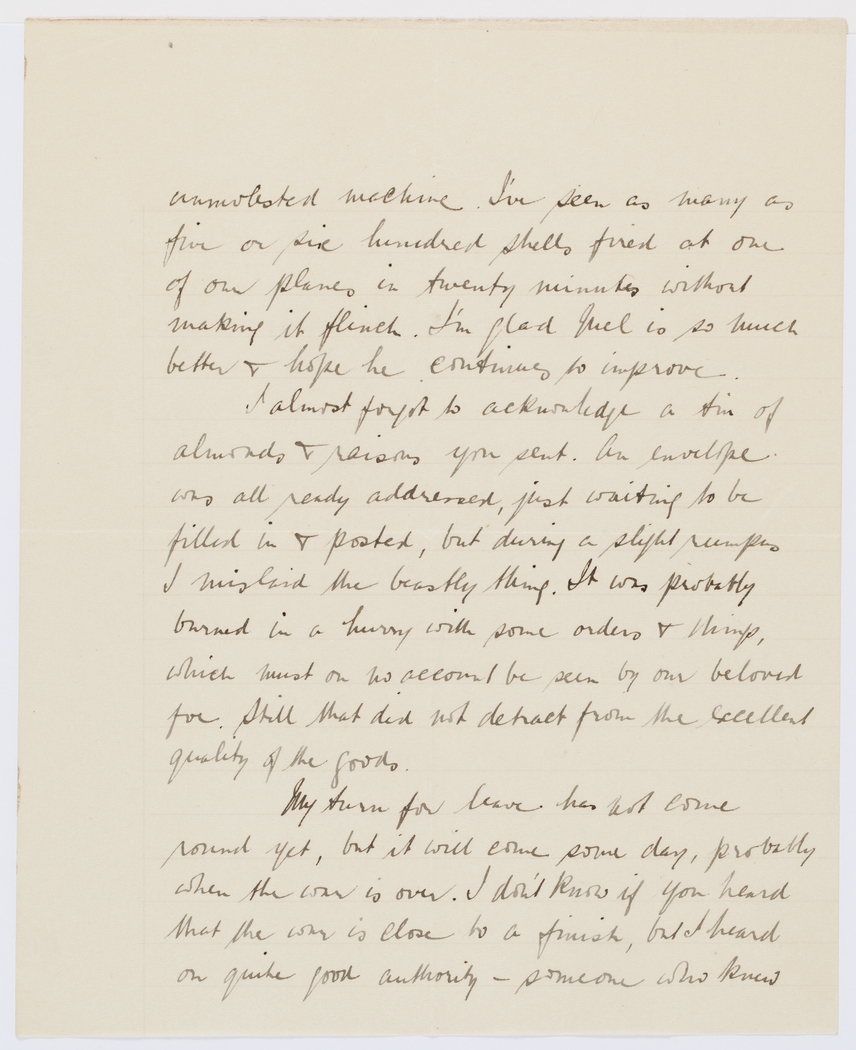 unmolested machine. I've seen as many as
five or six hundred shells fired at one
of our planes in twenty minutes without
making it flinch. I'm glad Mel is so much
better & hope he continues to improve.
I almost forgot to acknowledge a tin of
almonds & raisons you sent. An envelope
was all ready addressed, just waiting to be
filled in & posted, but during a slight rumpus
I mislaid the beastly thing. It was probably
burned in a hurry with some orders & things,
which must on no account be seen by our beloved
foe. Still that did not detract from the excellent
quality of the goods.
My turn for leave has not come
round yet, but it will come some day, probably
when the war is over. I don't know if you heard
that the war is close to a finish, but I heard
on quite good authority – someone who knew